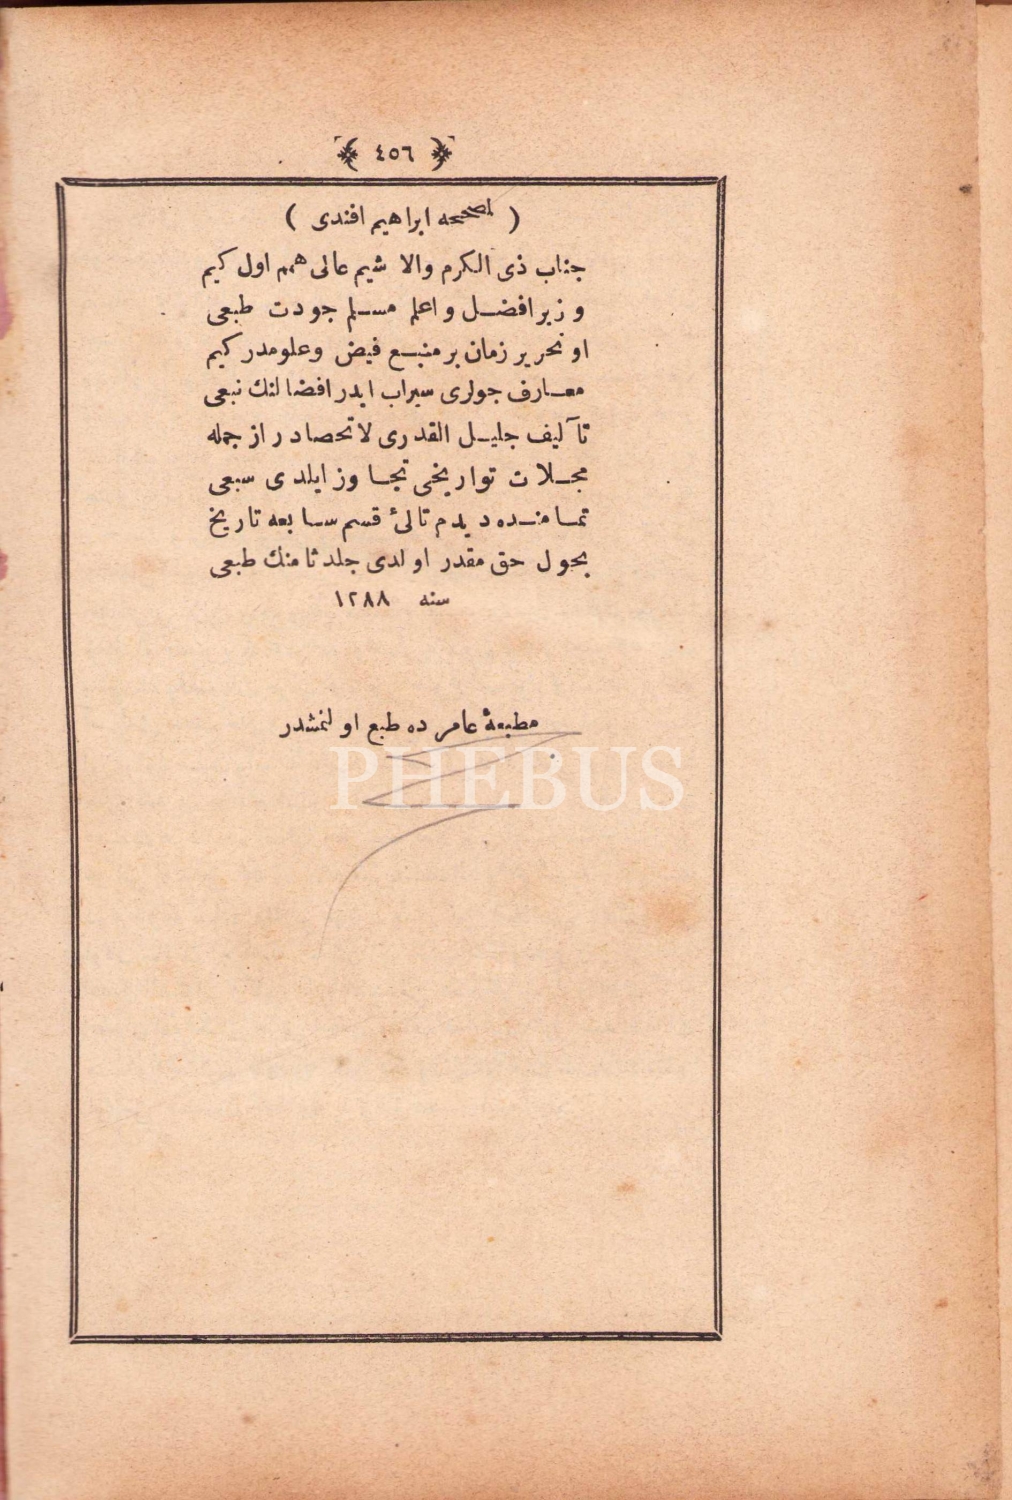 ﴿ ٤٥٦ ﴾
( لمصححه ابراهيم افندى )
جناب ذى الكرم والا شيم عالى همم اول كيم
وزير افضل و اعلم مسلم جودت طبعى
او نحرير زمان بر منبع فيض وعلومدر كيم
معارف جولرى سيراب ايدر افضالنك نبعى
تآليف جليل القدرى لاتحصادر از جمله
مجلات تواريخى تجاوز ايلدى سبعى
تمامنده ديدم تالئ قسم سابعه تاريخ
بحول حق مقدر اولدى جلد ثامنك طبعى
سنه ١٢٨٨
مطبعۀ عامره ده طبع اولنمشدر
PHEBUS